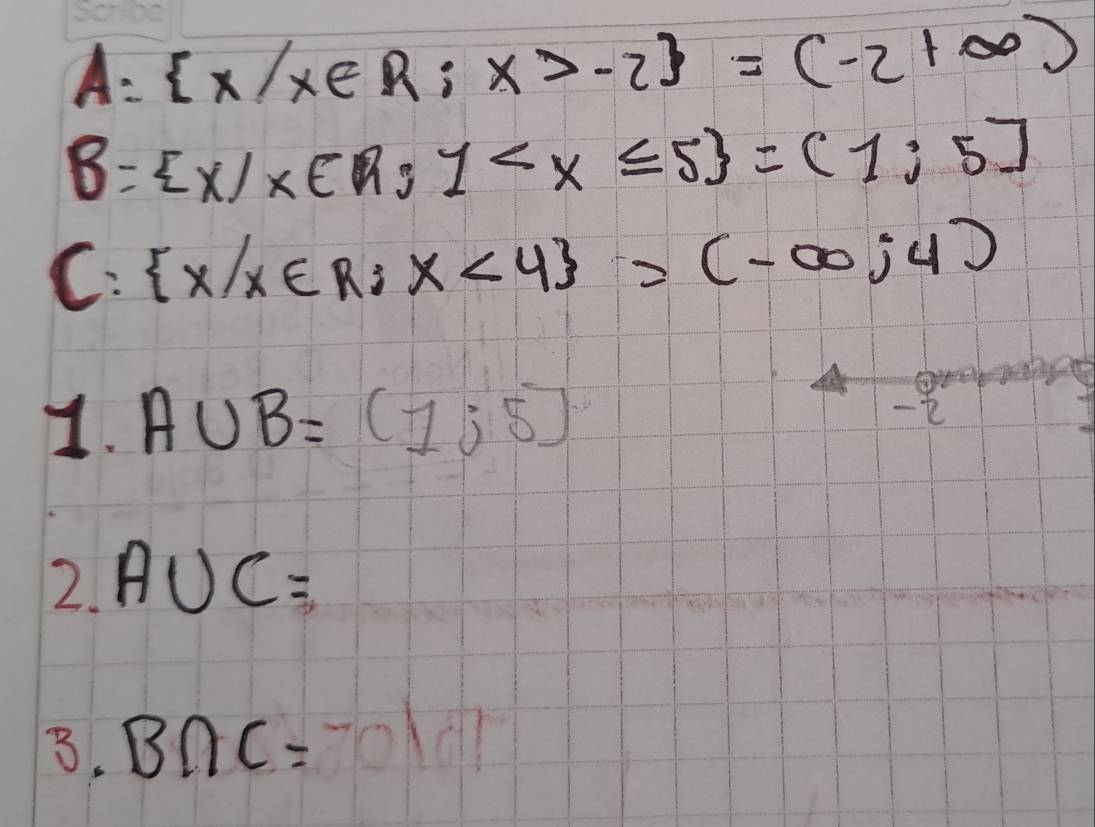 Scribe
A: {x/x∈R; x>-2} = (-2+∞)
B={x/x∈R; 1<x≤5}=(1; 5]
C: {x/x∈R; x<4} = (-∞;4)
1. A∪B= (1;5]
-2
2. A∪C=
3. B∩C=